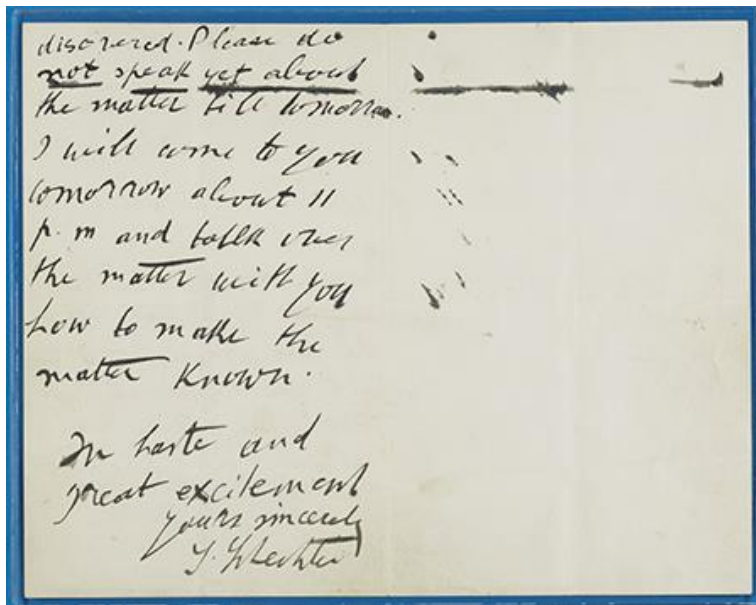 discovered. Please do
not speak yet about
the matter till tomorrow.
I will come to you
tomorrow about 11
p. m and talk over
the matter with you
how to make the
matter known.
In haste and
great excitement
yours sincerely
S. Schechter